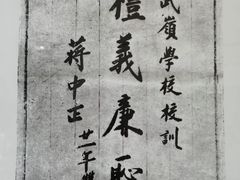 武嶺學校校訓
禮義廉恥
蔣中正
廿一年